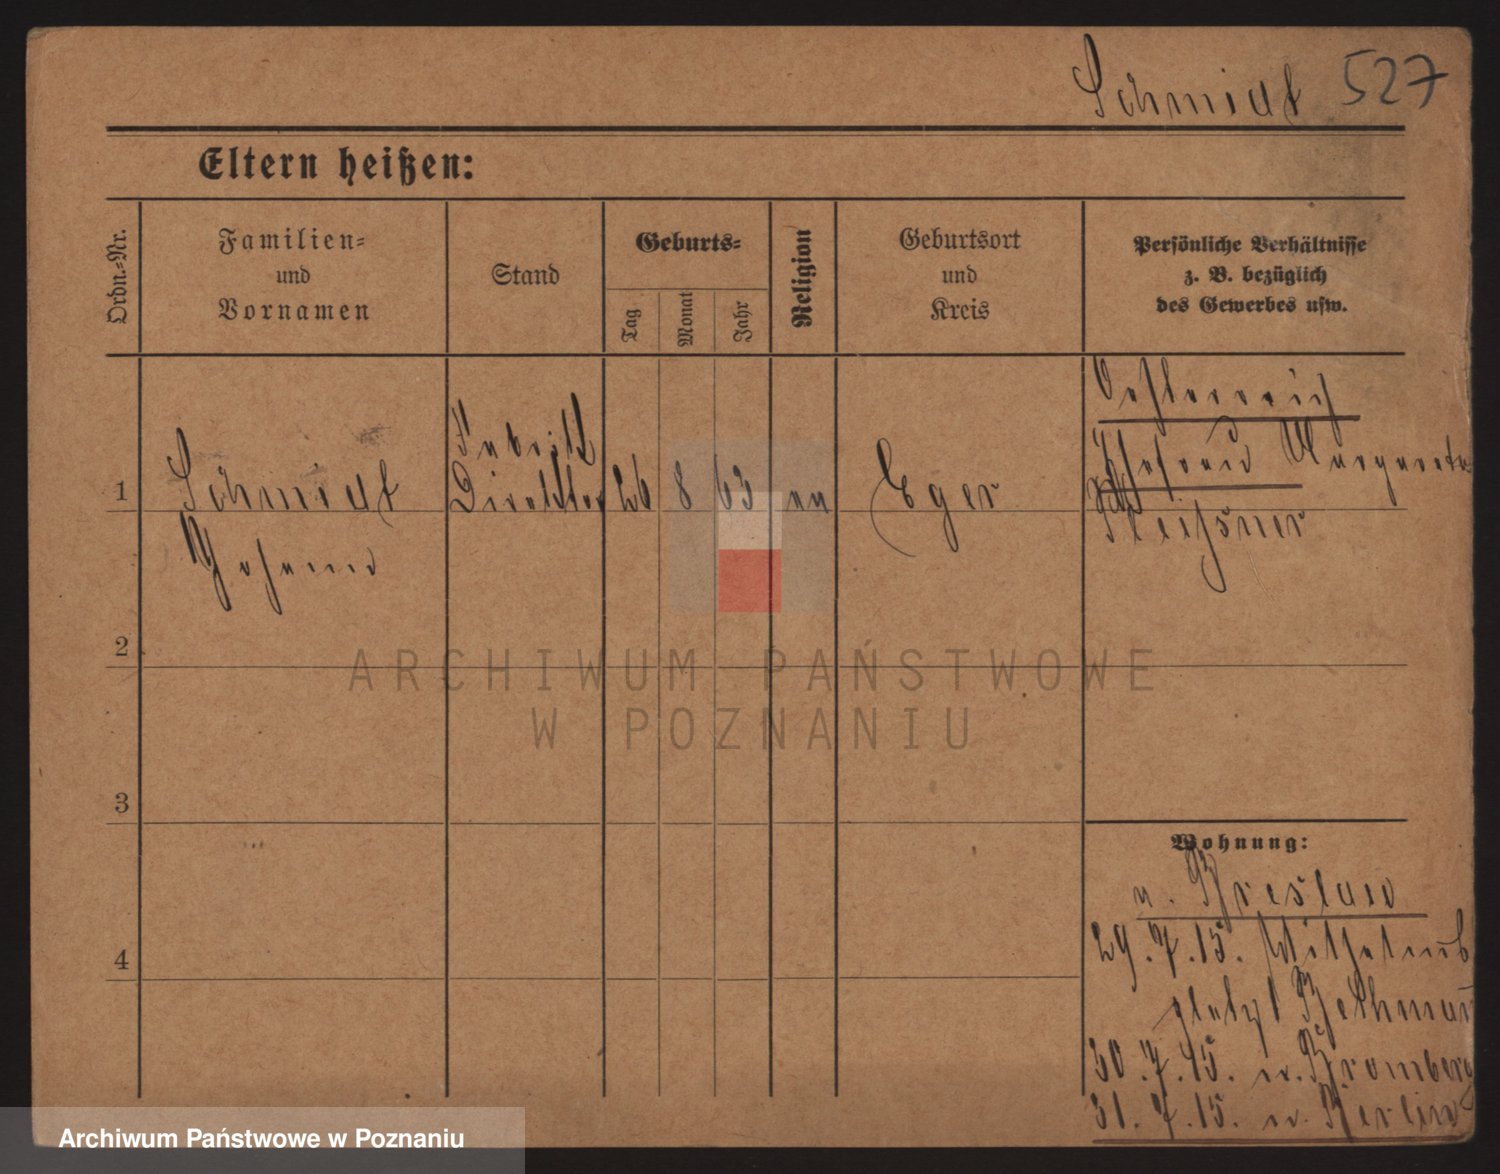 Schmidt 527
Eltern heißen:
Ordn.=Nr.
Familien=
und
Vornamen
Stand
Geburts=
Tag
Monat
Jahr
Religion
Geburtsort
und
Kreis
Persönliche Verhältnisse
z. B. bezüglich
des Gewerbes usw.
Oesterreich
1 Schmidt Fabrik Direktor 26 8 63 Eger Ehefrau Margarete
Johann Pleißner
2
3
4
ARCHIWUM PAŃSTWOWE
W POZNANIU
Wohnung:
n. Breslau
29.7.15. Wilhelms
platz 1 Bethman
30.7.15. n. Bromberg
31.7.15. n. Berlin
Archiwum Państwowe w Poznaniu